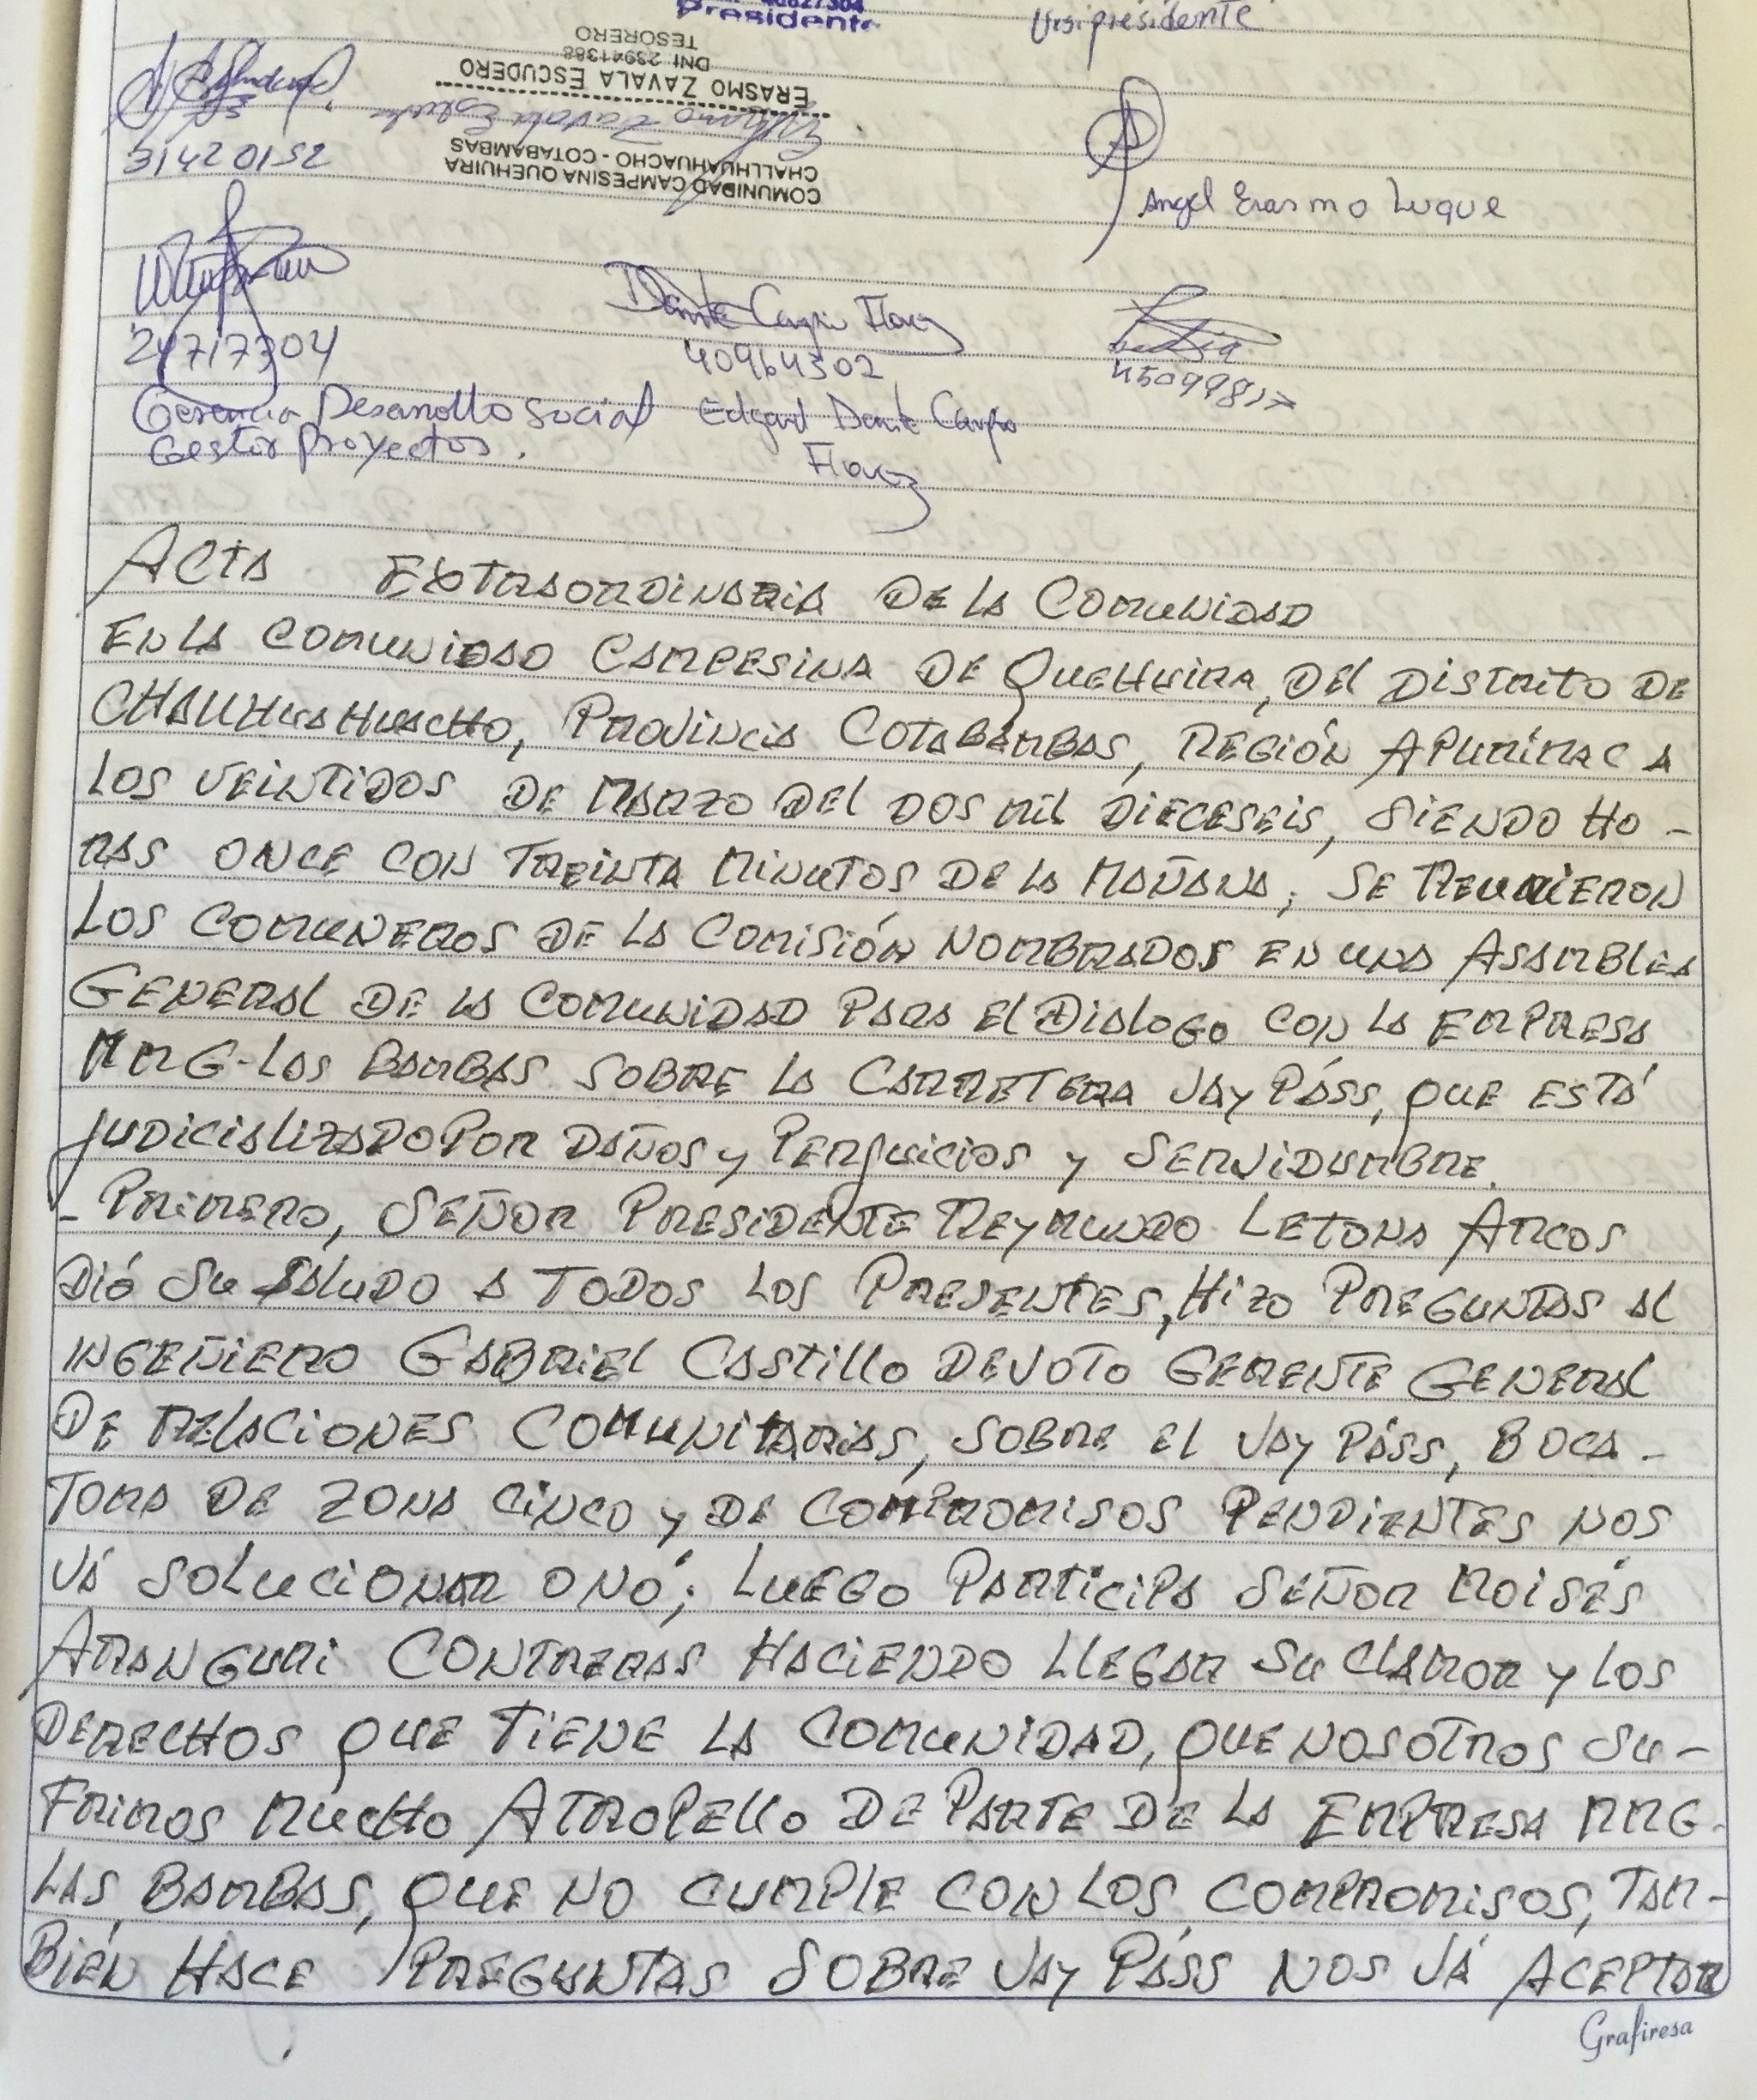 40827304
Presidente
Visipresidente
31420152
COMUNIDAD CAMPESINA QUEHUIRA
CHALLHUAHUACHO - COTABAMBAS
ERASMO ZAVALA ESCUDERO
DNI 23941388
TESORERO
Angel Erasmo Luque
24717304
Gerencia Desarrollo Social
Gestor Proyectos.
Dante Carpio Florez
40964302
Edgard Dante Carpio
Florez
ACTA EXTRAORDINARIA DE LA COMUNIDAD
EN LA COMUNIDAD CAMPESINA DE QUEHUIRA, DEL DISTRITO DE
CHALLHUAHUACHO, PROVINCIA COTABAMBAS, REGIÓN APURÍMAC A
LOS VEINTIDOS DE MARZO DEL DOS MIL DIECESEIS, SIENDO HO-
RAS ONCE CON TREINTA MINUTOS DE LA MAÑANA; SE REUNIERON
LOS COMUNEROS DE LA COMISIÓN NOMBRADOS EN UNA ASAMBLEA
GENERAL DE LA COMUNIDAD PARA EL DIALOGO CON LA EMPRESA
MMG-LAS BAMBAS SOBRE LA CARRETERA VAY PÁSS, QUE ESTÁ
JUDICIALIZADO POR DAÑOS y PERJUICIOS y SERVIDUMBRE.
- PRIMERO, SEÑOR PRESIDENTE REYMUNDO LETONA ARCOS
DIÓ SU SALUDO A TODOS LOS PRESENTES, HIZO PREGUNTAS AL
INGEÑIERO GABRIEL CASTILLO DEVOTO GERENTE GENERAL
DE RELACIONES COMUNITARIAS, SOBRE EL VAY PÁSS, BOCA-
TOMA DE ZONA CINCO y DE COMPROMISOS PENDIENTES NOS
VÁ SOLUCIONAR O NÓ; LUEGO PARTICIPA SEÑOR MOISÉS
ARANGURI CONTRERAS HACIENDO LLEGAR SU CLAMOR y LOS
DERECHOS QUE TIENE LA COMUNIDAD, QUE NOSOTROS SU-
FRIMOS MUCHO ATROPELLO DE PARTE DE LA EMPRESA MMG-
LAS BAMBAS, QUE NO CUMPLE CON LOS COMPROMISOS, TAM-
BIÉN HACE PREGUNTAS SOBRE VAY PÁSS NOS VÁ ACEPTAR
Grafiresa